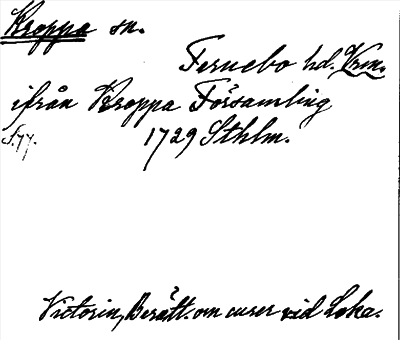 Kroppa sn.
Fernebo hd. Vrm.
ifrån Kroppa Församling
S.77. 1729 Sthlm.
Victorin, Berätt. om curer vid Loka.